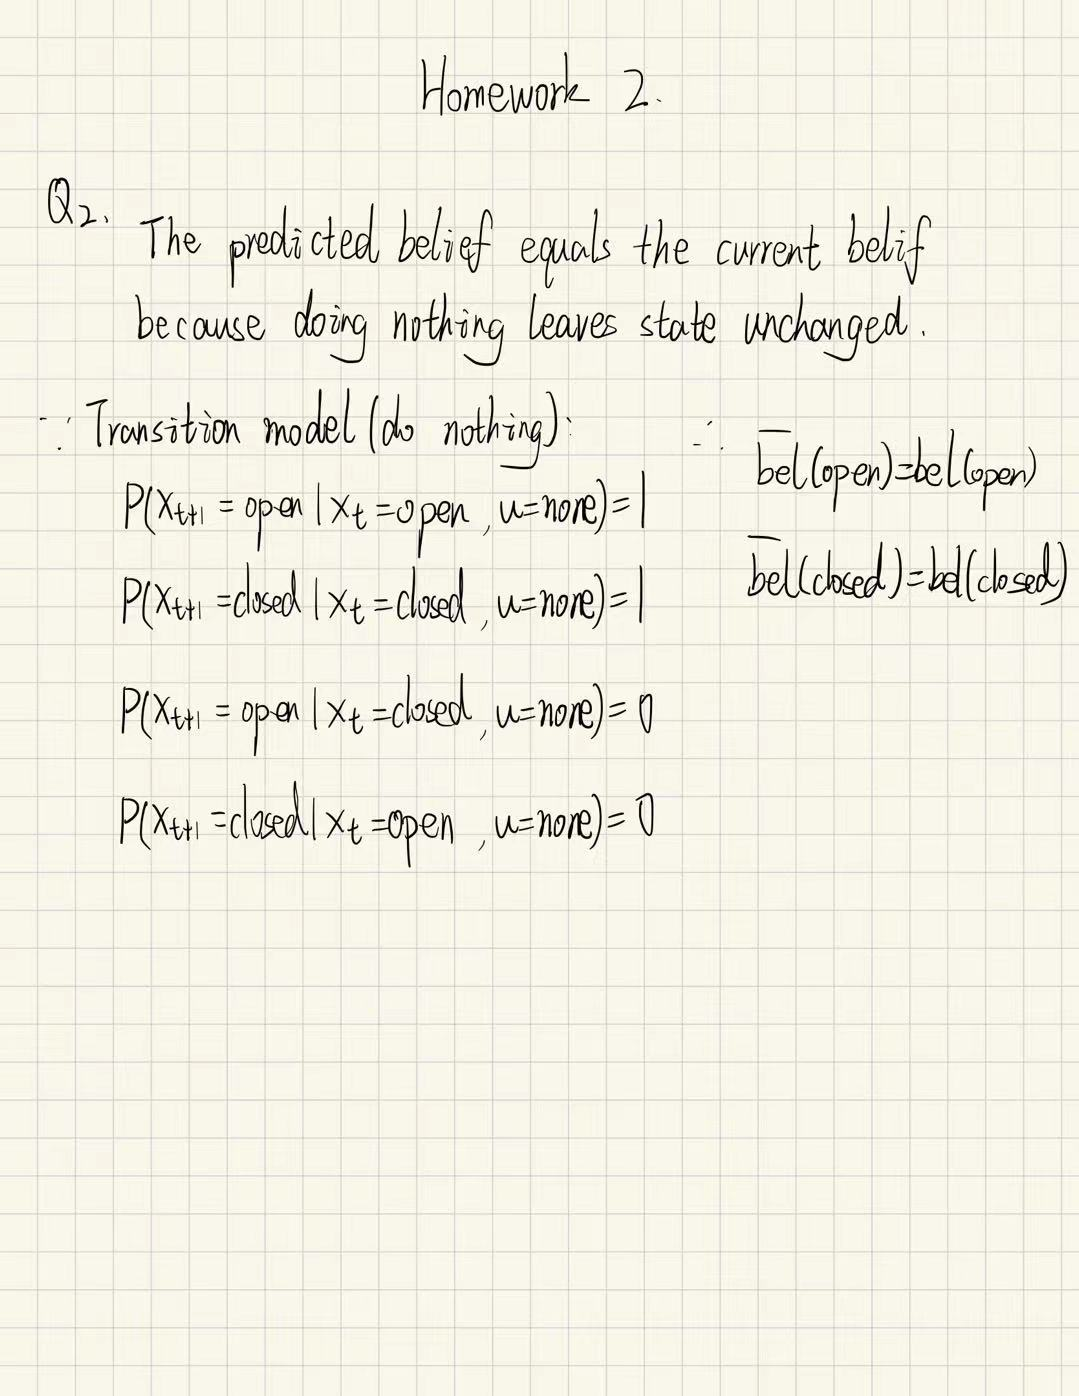 Homework 2.
Q2.
The predicted belief equals the current belif
because doing nothing leaves state unchanged.
∵ Transition model (do nothing):
P(x_{t+1} = open | x_t = open, u=none) = 1
P(x_{t+1} = closed | x_t = closed, u=none) = 1
P(x_{t+1} = open | x_t = closed, u=none) = 0
P(x_{t+1} = closed | x_t = open, u=none) = 0
∴ b̅e̅l̅(open) = bel(open)
b̅e̅l̅(closed) = bel(closed)